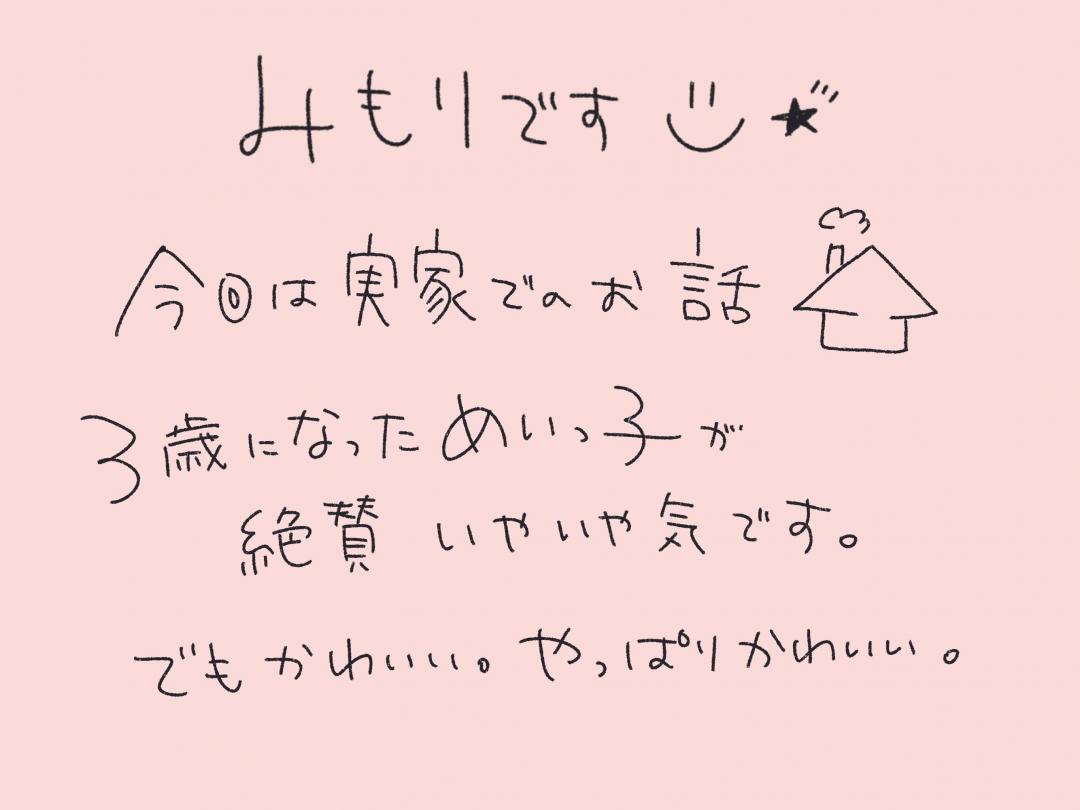 みもりです
今回は実家でのお話
3歳になっためいっ子が
絶賛 いやいや気です。
でもかわいい。やっぱりかわいい。